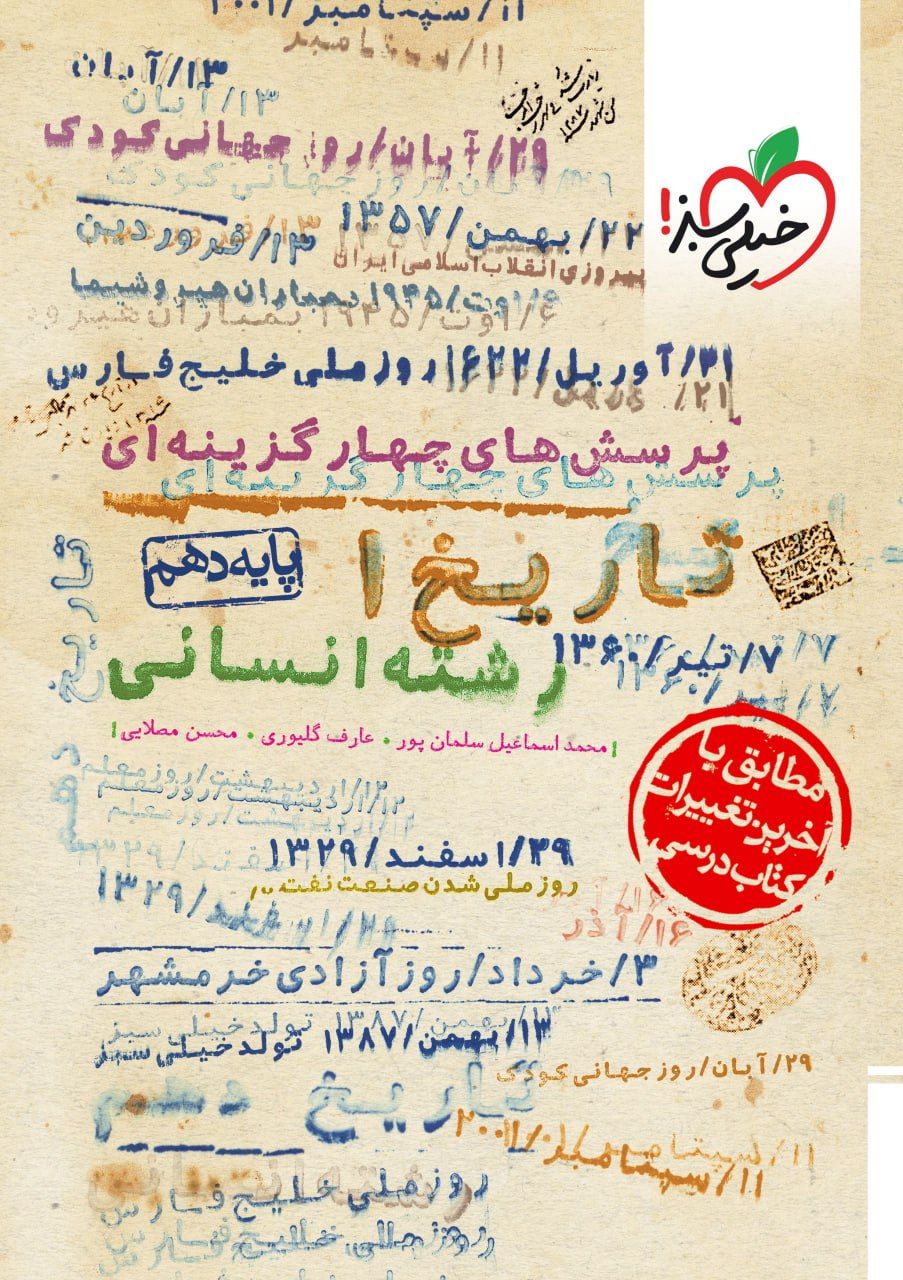 ۱۱/سپتامبر/۲۰۰۱
۱۱/سپتامبر
۱۳/آبان
۱۳/آبان
۲۹/آبان/روز جهانی کودک
۲۹/آبان/روز جهانی کودک
خیلی سبز!
۲۲/بهمن/۱۳۵۷
۱۳/فروردین
پیروزی انقلاب اسلامی ایران
۶/اوت/۱۹۴۵ بمباران هیروشیما
۶/اوت/۱۹۴۵ بمباران هیرو
۲۱/آوریل/۱۶۲۲ روز ملی خلیج فارس
پرسش‌های چهارگزینه‌ای
پرسش‌های چهارگزینه‌ای
تاریخ ۱
پایه دهم
رشته انسانی
۷/تیر/۱۳۶۰
۷/تیر/۱۳۶۰
محمد اسماعیل سلمان پور • عارف گلیوری • محسن مصلایی
تاریخ دهم
مطابق با
آخرین تغییرات
کتاب درسی
۱۲/اردیبهشت/روز معلم
۱۲/اردیبهشت/روز معلم
۱۲/اردیبهشت/روز معلم
۲۹/اسفند/۱۳۲۹
روز ملی شدن صنعت نفت
۲۹/اسفند/۱۳۲۹
۱۶/آذر
۳/خرداد/روز آزادی خرمشهر
۱۳/بهمن/۱۳۸۷ تولد خیلی سبز
۱۳/بهمن/۱۳۸۷ تولد خیلی سبز
۲۹/آبان/روز جهانی کودک
تاریخ دهم
۱۱/سپتامبر/۲۰۰۱
۱۱/سپتامبر/۲۰۰۱
رشته انسانی
روز ملی خلیج فارس
روز ملی خلیج فارس